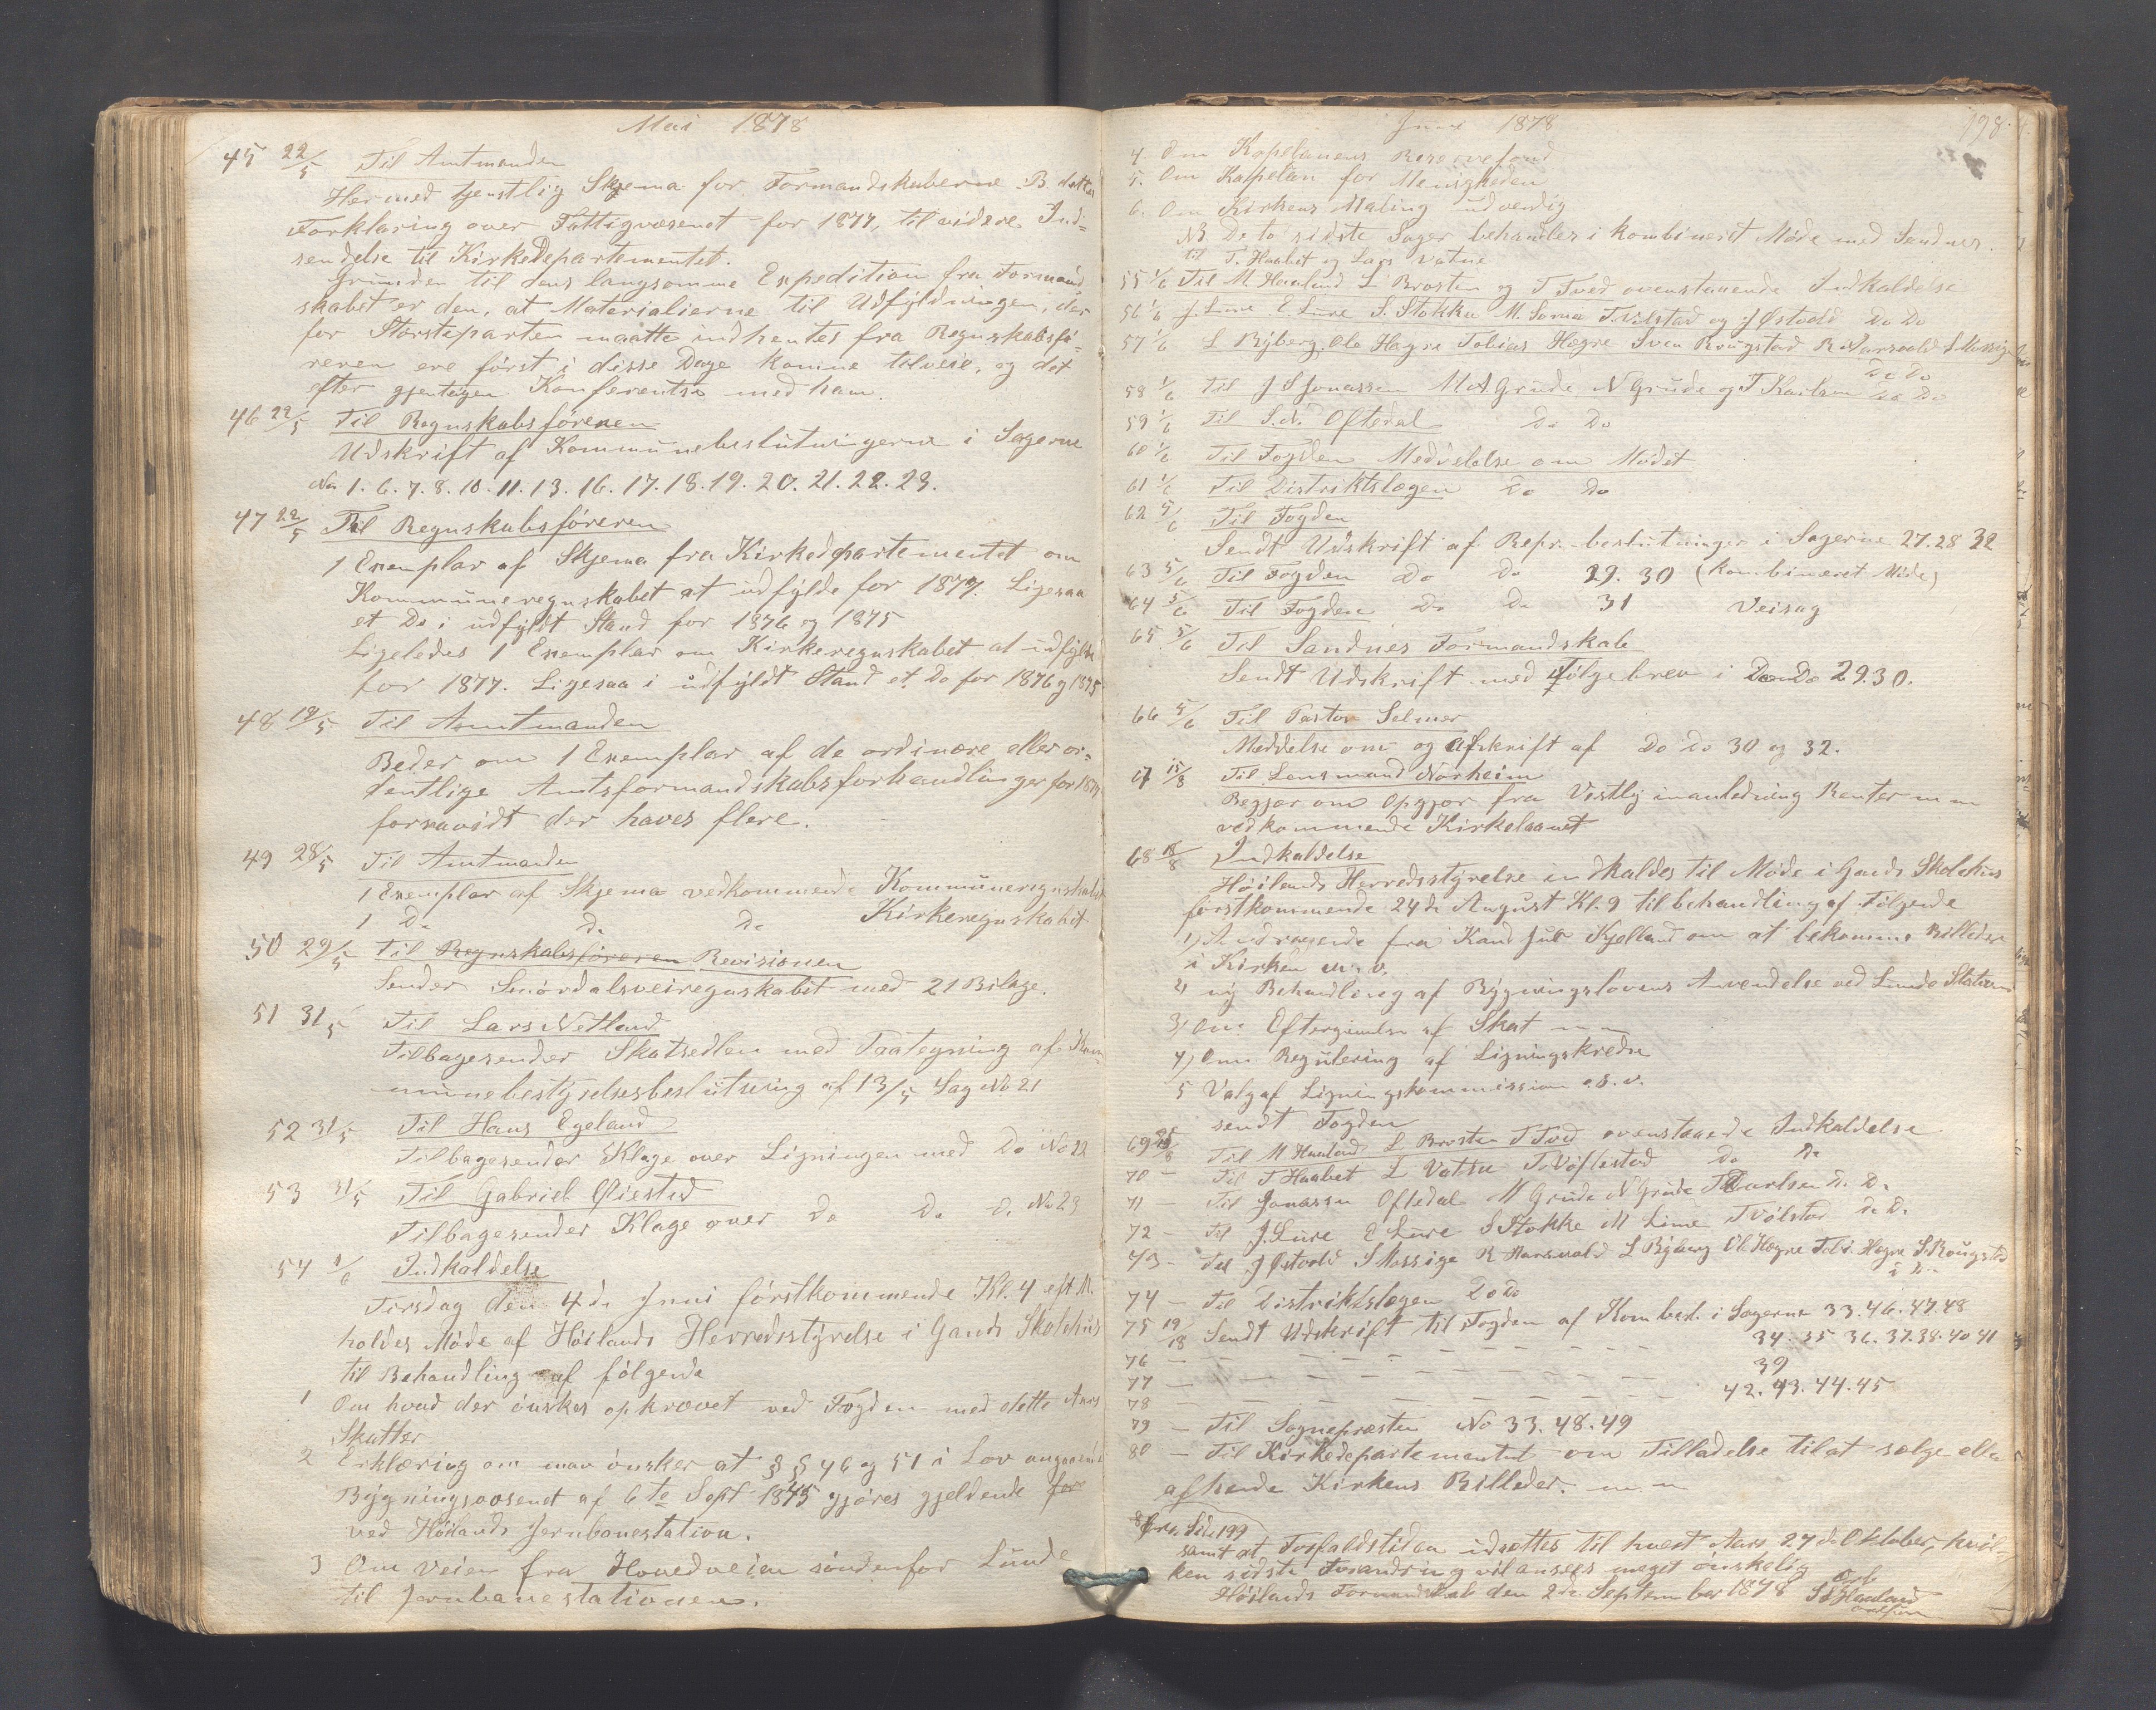 Mai 1878
45 22/5 Til Amtmanden
Hermed tjenstlig Skjema for Formandskaberne B. dettes
Forklaring over Fattigvæsenet for 1877, til videre Ind-
sendelse til Kirkedepartementet.
Grunden til dens langsomme Expedition fra Formand-
skabet er den, at Materialierne til Udfyldningen, der
for Störsteparten maatte indhentes fra Regnskabsfö-
reren ere först i disse Dage komne tilveie, og det
efter gjentagen Konferentse med ham.
46 22/5 Til Regnskabsföreren
Udskrift af Kommunebeslutningerne i Sagerne
No 1. 6. 7. 8. 10. 11. 13. 16. 17. 18. 19. 20. 21. 22. 23.
47 22/5 Til Regnskabsföreren
1 Exemplar af Skjema fra Kirkedepartementet om
Kommuneregnskabet at udfylde for 1877. Ligesaa
et Do i udfyldt Stand for 1876 og 1875
Ligeledes 1 Exemplar om Kirkeregnskabet at udfylde
for 1877. Ligesaa i udfyldt Stand et Do for 1876 og 1875
48 18/5 Til Amtmanden
Beder om 1 Exemplar af de ordinære eller or-
dentlige Amtsformandskabsforhandlinger for 1877
forsavidt der haves flere.
49 28/5 Til Amtmanden
1 Exemplar af Skjema vedkommende Kommuneregnskabet
1 Do Do Do Kirkeregnskabet
50 29/5 Til Regnskabsföreren Revisionen
Sender Smördalsveiregnskabet med 21 Bilage.
51 31/5 Til Lars Netland
Tilbagesender Skatsedlen med Paategning af Kom-
munebestyrelsesbeslutning af 13/5 Sag No 21
52 31/5 Til Hans Egeland
Tilbagesender Klage over Ligningen med Do No 22
53 31/5 Til Gabriel Øiested
Tilbagesender Klage over Do Do Do No 23
54 1/6 Indkaldelse
Tirsdag den 4de Juni förstkommende Kl. 4 eft M.
holdes Möde af Höilands Herredsstyrelse i Gands Skolehus
til Behandling af fölgende
1 Om hvad der önskes opkrævet ved Fogden med dette Aars
Skatter
2 Erklæring om man önsker at § § 46 og 51 i Lov angaaende
Bygningsvæsenet af 6te Sept 1845 gjöres gjeldende for
ved Höilands Jernbanestation.
3 Om Veien fra Hovedveien söndenfor Lunde
til Jernbanestationen.
Juni 1878 198.
4. Om Kapelanens Reservefond
5. Om Kapelan for Menigheden
6. Om Kirkens Maling udvendig
NB De to sidste Sager behandles i kombineret Möde med Sandnes.
til T. Haabet og Lars Vatne
55 1/6 Til M Haaland L Brosten og T Tved ovenstaaende Indkaldelse
56 1/6 J. Lure E. Lure S. Stokke M. Soma T. Vølstad og J Østvold Do Do
57 1/6 L Ryberg Ole Hægre Tobias Hægre Sven Rougstad R Marsvold S Mossige
Do Do
58 1/6 Til J S Jonassen M A Grude N Grude og T. Karlsen Do Do
59 1/6 Til S. N. Oftedal Do Do
60 1/6 Til Fogden Meddelelse om Mödet
61 1/6 Til Distriktslægen Do Do
62 5/6 Til Fogden
Sendt Udskrift af Repr.-beslutninger i Sagerne 27. 28 32
63 5/6 Til Fogden Do Do 29. 30 (kombineret Möde)
64 5/6 Til Fogden Do Do 31 Veisag
65 5/6 Til Sandnes Formandskab
Sendt Udskrift med Fölgebrev i Do Do 29. 30.
66 5/6 Til Pastor Selmer
Meddelse om og Afskrift af Do Do 30 og 32.
67 15/8 Til Lensmand Norheim
Begjær om Opgjör fra Vestly i anledning Renter m m
vedkommende Kirkelaanet
68 18/8 Indkaldelse
Höilands Herredsstyrelse indkaldes til Möde i Gands Skolehus
förstkommende 24de August Kl. 9 til behandling af Fölgende
1) Andragende fra Kand Jul Kjelland om at bekomme Billeder
i Kirken m. v.
2) ny Behandling af Bygningslovens Anvendelse ved Lunde Station
3) Om Eftergivelse af Skat m m
4) Om Regulering af Ligningskredse
5 Valg af Ligningskommission o. s. v.
sendt Fogden
69 18/8 Til M Haaland L Brosten T Tved ovenstaaende Indkaldelse
70 — Til T Haabet L Vatne T. Vølstad Do Do
71 — Til Jonassen Oftedal M Grude N Grude T Carlsen D. D.
72 — Til J. Lure E Lure S Stokke M Lima T Vølstad D. D.
73 - Til J Østvold S Mossige R Marsvold L Ryberg Ole Hægre Tobi. Hægre S. Rougstad
D. D.
74 — Til Distriktslægen Do Do
75 19/18 Sendt Udskrift til Fogden af Kom besl. i Sagerne 33. 46. 47. 48
76 — — — — — — — — — 34. 35 36. 37. 38. 40 41
77 — — — — — — — — — 39
78 — — — — — — — — — 42. 43. 44. 45
79 — Til Sognepræsten No 33. 48. 49
80 — Til Kirkedepartementet om Tilladelse til at sælge eller
afhænde Kirkens Billeder. m m
fra Side 199
samt at Forfaldstiden udsættes til hvert Aars 27de Oktober, hvil-
ken sidste Forandring vil ansees meget önskelig
Höilands Formandskab den 2de September 1878 S Haaland